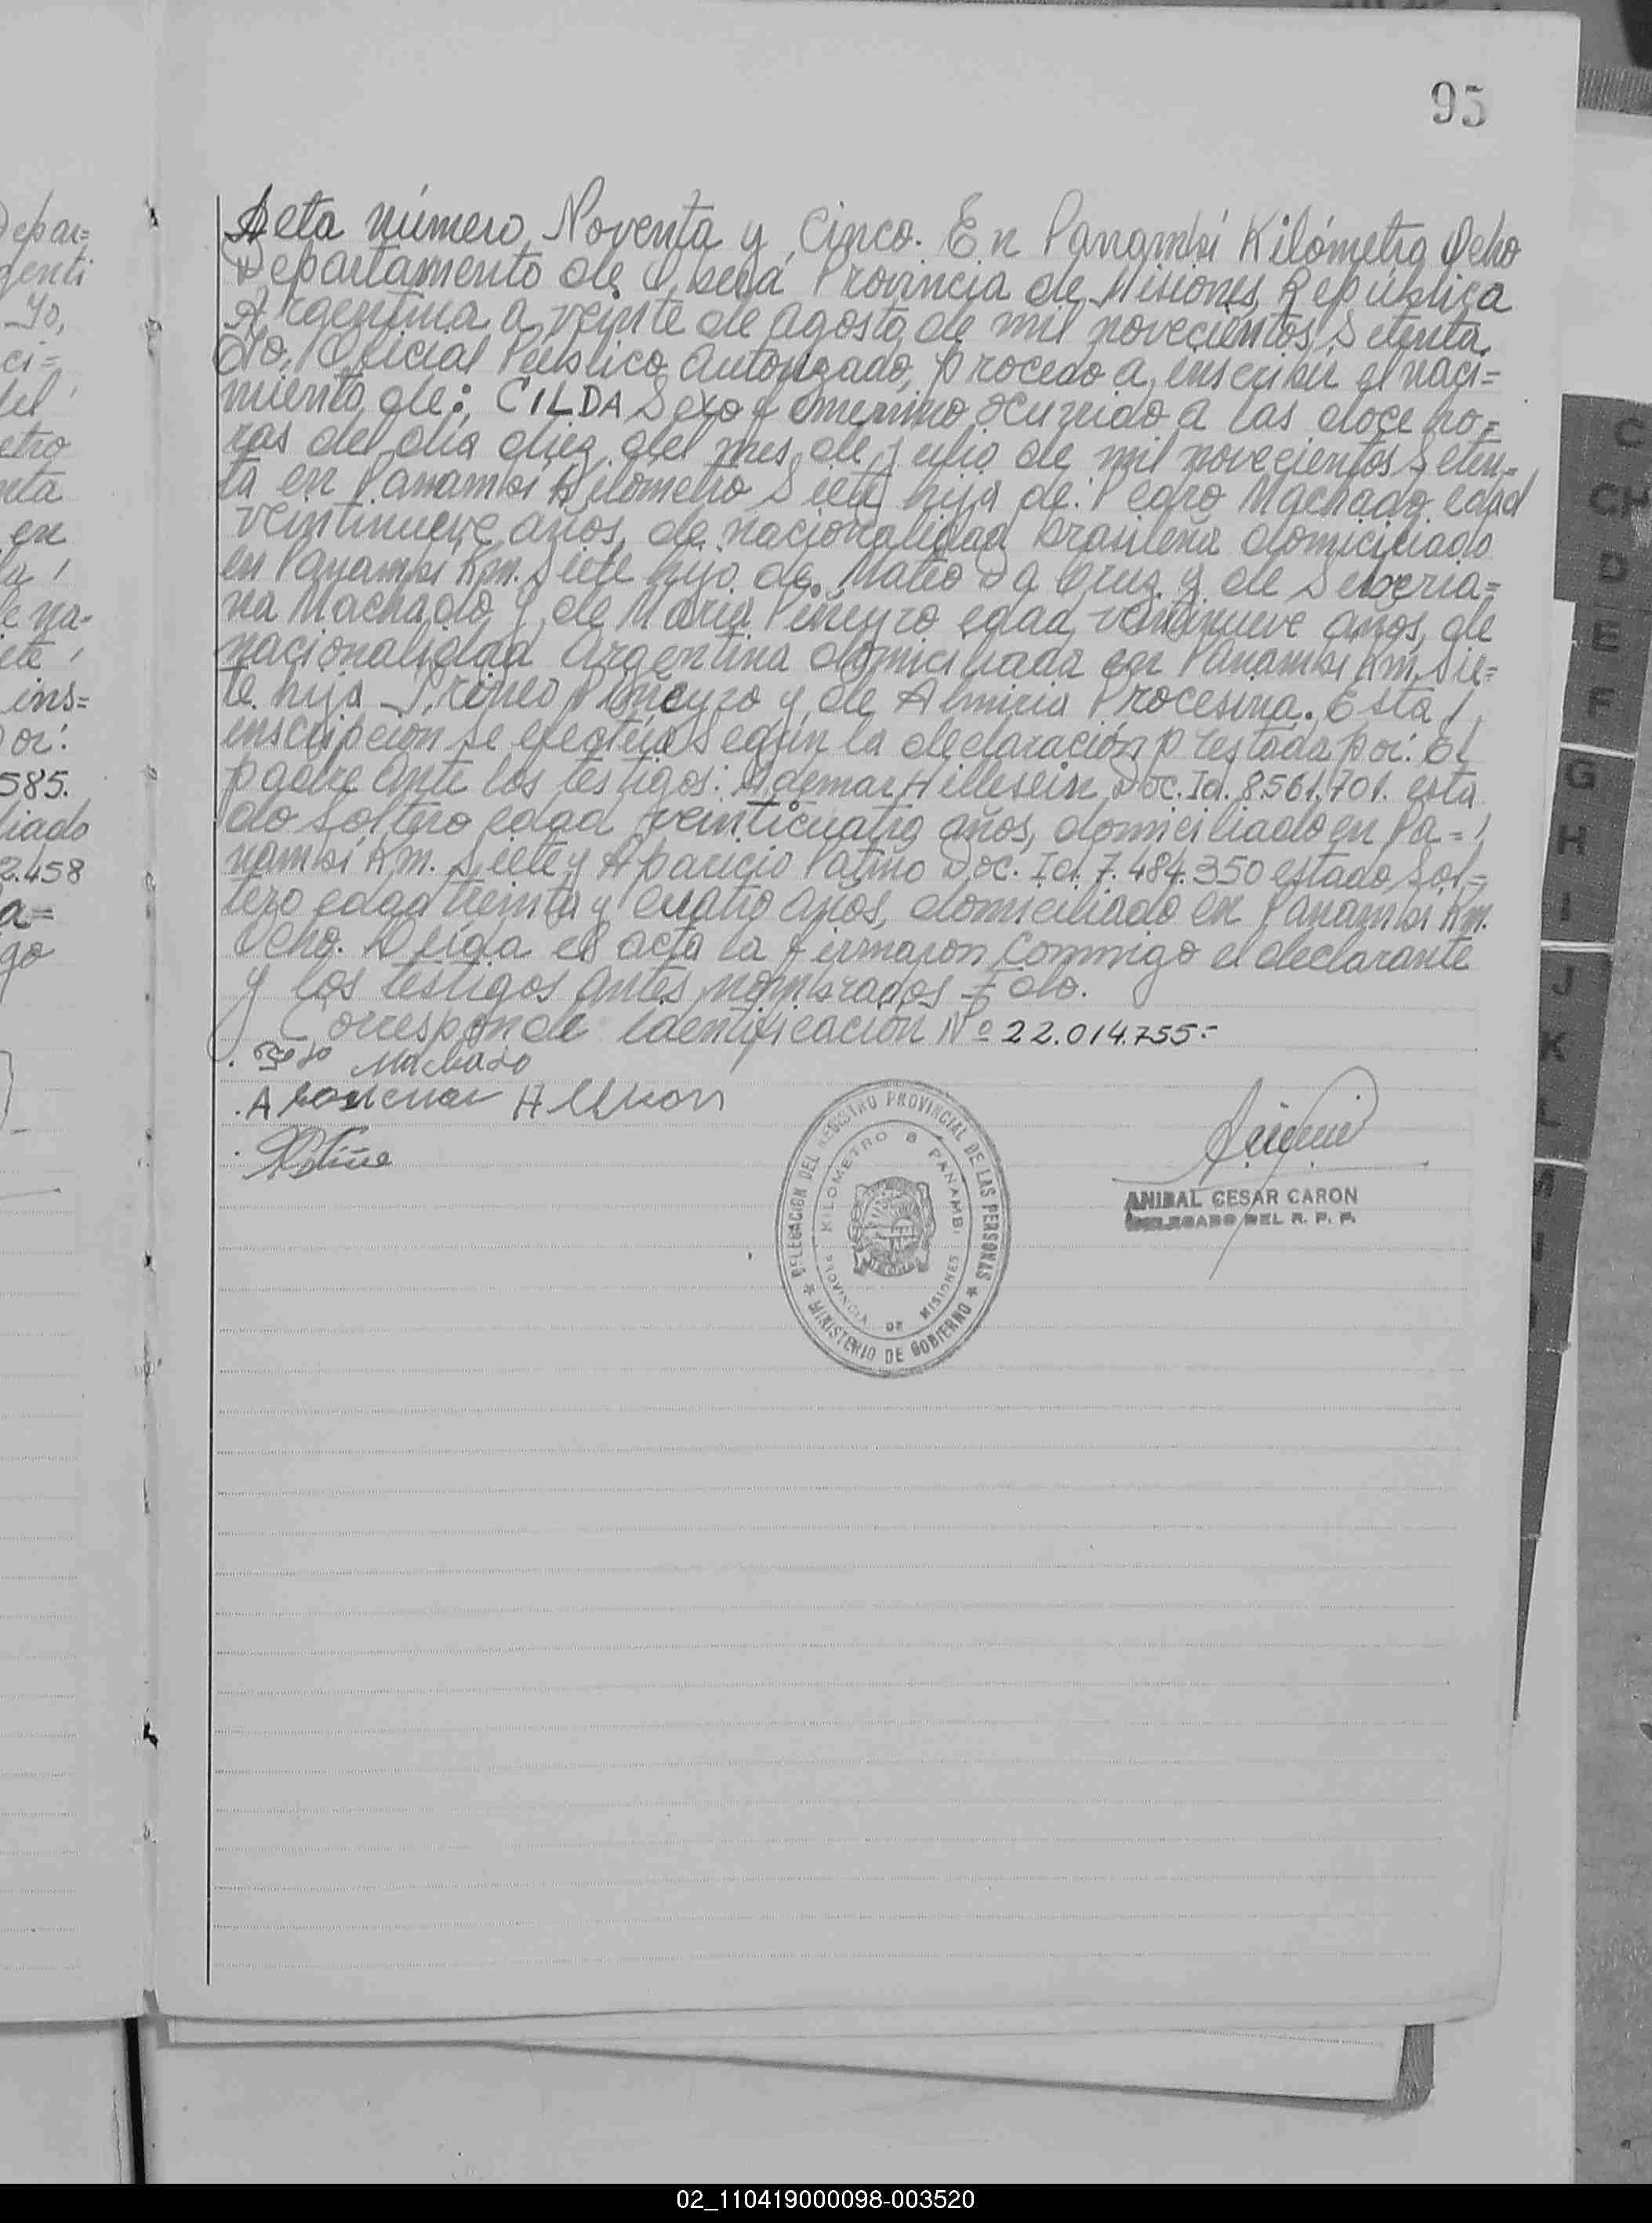 95
Acta número Noventa y Cinco. En Panambí Kilómetro Ocho
Departamento de Oberá Provincia de Misiones, República
Argentina a veinte de agosto de mil novecientos Setenta,
Yo, Oficial Público Autorizado, procedo a inscribir el naci=
miento de: CILDA Sexo Femenino ocurrido a las doce ho=
ras del día diez del mes de julio de mil novecientos Seten=
ta en Panambí Kilómetro Siete hija de: Pedro Machado edad
veintinueve años, de nacionalidad brasileña domiciliado
en Panambí Km. Siete hijo de Mateo Da Cruz y de Seberia=
na Machado y de María Piñeyro edad veintinueve años, de
nacionalidad Argentina domiciliada en Panambí Km. Sie=
te hija Piñeyro y de Almiria Procesina. Esta
inscripción se efectúa Según la declaración prestada por: El
padre ante los testigos: Ademar Hillesein Doc. Id. 8.561.701. esta
do Soltero edad veinticuatro años, domiciliado en Pa=
nambí Km. Siete y Aparicio Patiño Doc. Id. 7.484.350 estado Sol=
tero edad treinta y cuatro años, domiciliado en Panambí Km.
Ocho. Leída el acta la firmaron conmigo el declarante
y los testigos antes nombrados
Corresponde identificación Nº 22.014.755=
Machado
DELEGACION DEL REGISTRO PROVINCIAL DE LAS PERSONAS
KILOMETRO 8 PANAMBI
PROVINCIA DE MISIONES
MINISTERIO DE GOBIERNO
ANIBAL CESAR CARON
DELEGADO DEL R. P. P.
Depar=
genti
Yo,
ci=
del
etro
nta
en
la
de na=
ete
ins=
por:
585.
liado
2.458
a=
go
C
CH
D
E
F
G
H
I
J
K
L
M
02_110419000098-003520